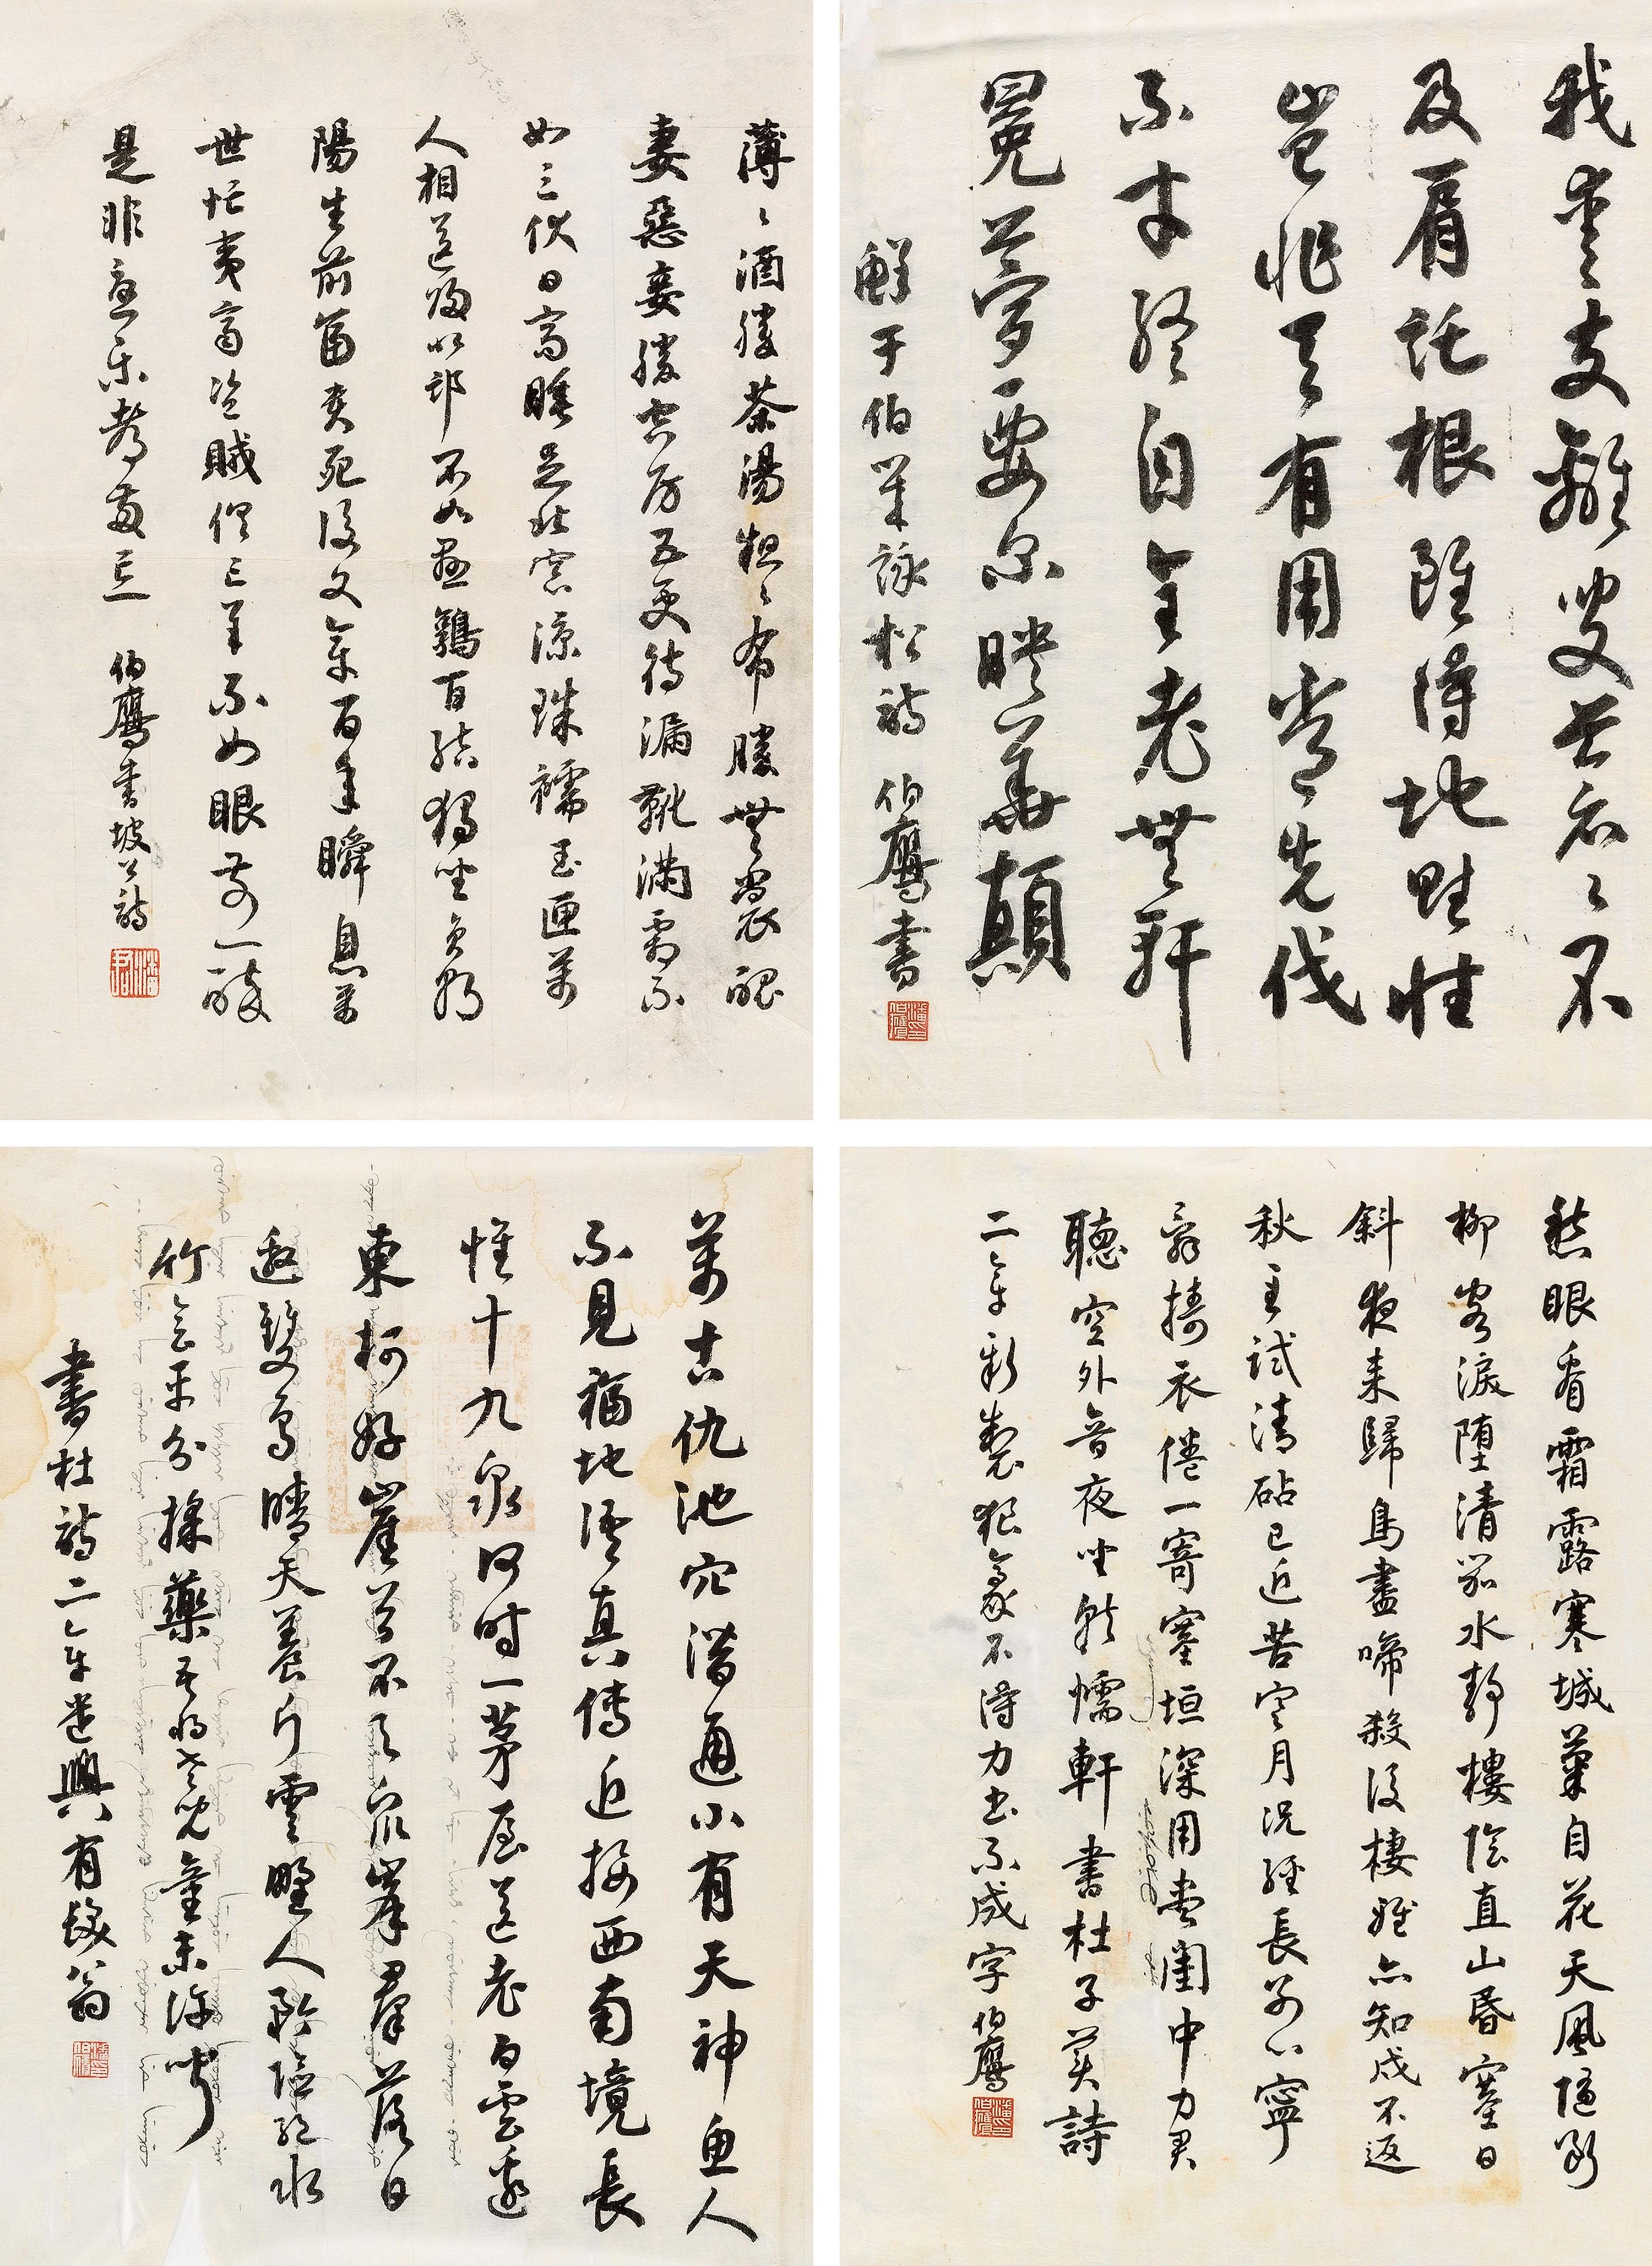 我愛支離叟蒼々不
及肩託根雖得地野性
豈非天有用當先伐
不才終自全老無軒
冕夢要爾映華顛
鮮于伯幾詠松詩 伯鷹書
薄々酒勝茶湯粗々布勝無裳醜
妻惡妾勝空房五更待漏靴滿霜不
如三伏日高睡足北窗涼珠襦玉匣萬
人相送歸北邙不如懸鶉百結獨坐負朝
陽生前富貴死後文章百年瞬息萬
世忙夷齊盜賊俱亡羊不如眼前一醉
是非憂樂都兩忘 伯鷹書坡公詩
愁眼看霜露寒城菊自花天風隨斷
柳客淚墮清笳水靜樓陰直山昏塞日
斜夜來歸鳥盡啼殺後棲鴉亦知戍不返
秋至試清砧已近苦寒月況經長別心寧
辭擣衣倦一寄塞垣深用盡閨中力君
聽空外音夜坐懦軒書杜子美詩
二章新製狼毫不得力書不成字 伯鷹
萬古仇池穴潛通小有天神魚人
不見福地語真傳近接西南境長
懷十九泉何時一茅屋送老白雲邊
東柯好崖谷不與衆峯羣落日
邀雙鳥晴天養片雲野人矜險絕水
竹會平分採藥吾將老兒童未許聞
書杜詩二章遣興 有髮翁